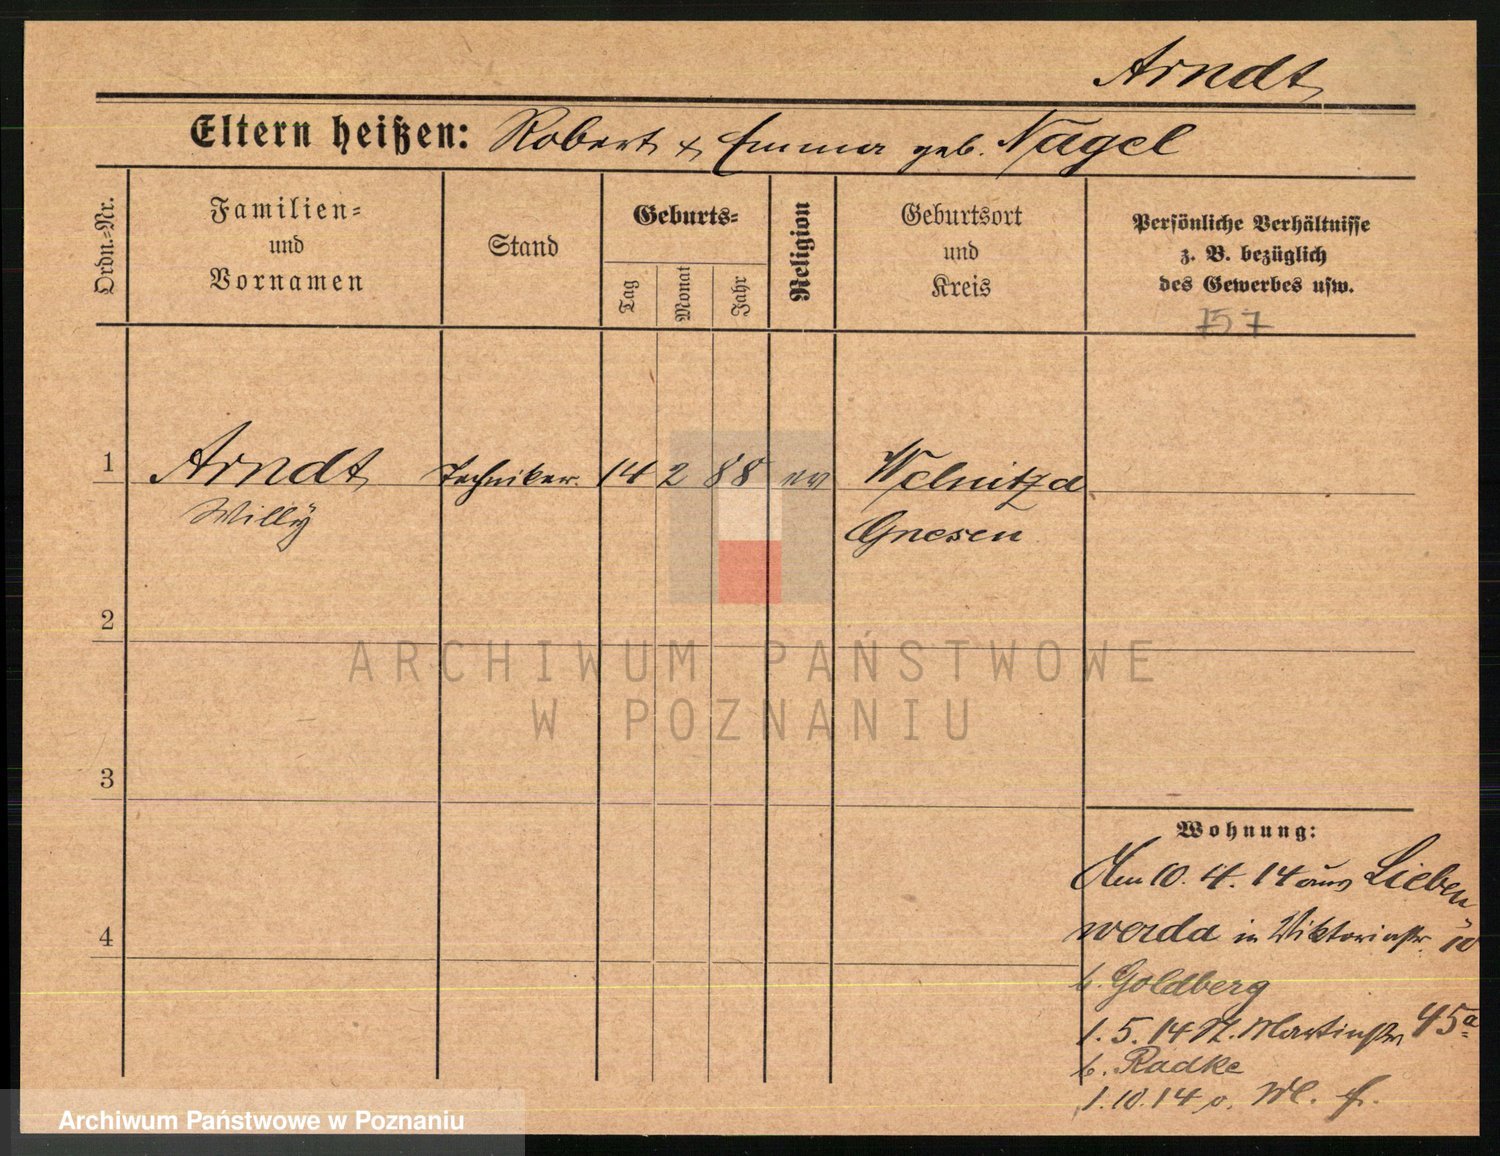 Arndt
Eltern heißen: Robert & Emma geb. Nagel
Ordn.-Nr.
Familien-
und
Vornamen
Stand
Geburts-
Tag
Monat
Jahr
Religion
Geburtsort
und
Kreis
Persönliche Verhältnisse
z. B. bezüglich
des Gewerbes usw.
757
1 Arndt Techniker. 14 2 88 ev Welnitza
Willy
Gnesen
2
3
4
ARCHIWUM PAŃSTWOWE
W POZNANIU
Wohnung:
Am 10. 4. 14 aus Lieben
werda in Viktoriastr. 10
b. Goldberg
1. 5. 14 St. Martinstr 45a
b. Radke
1. 10. 14 o.
Archiwum Państwowe w Poznaniu